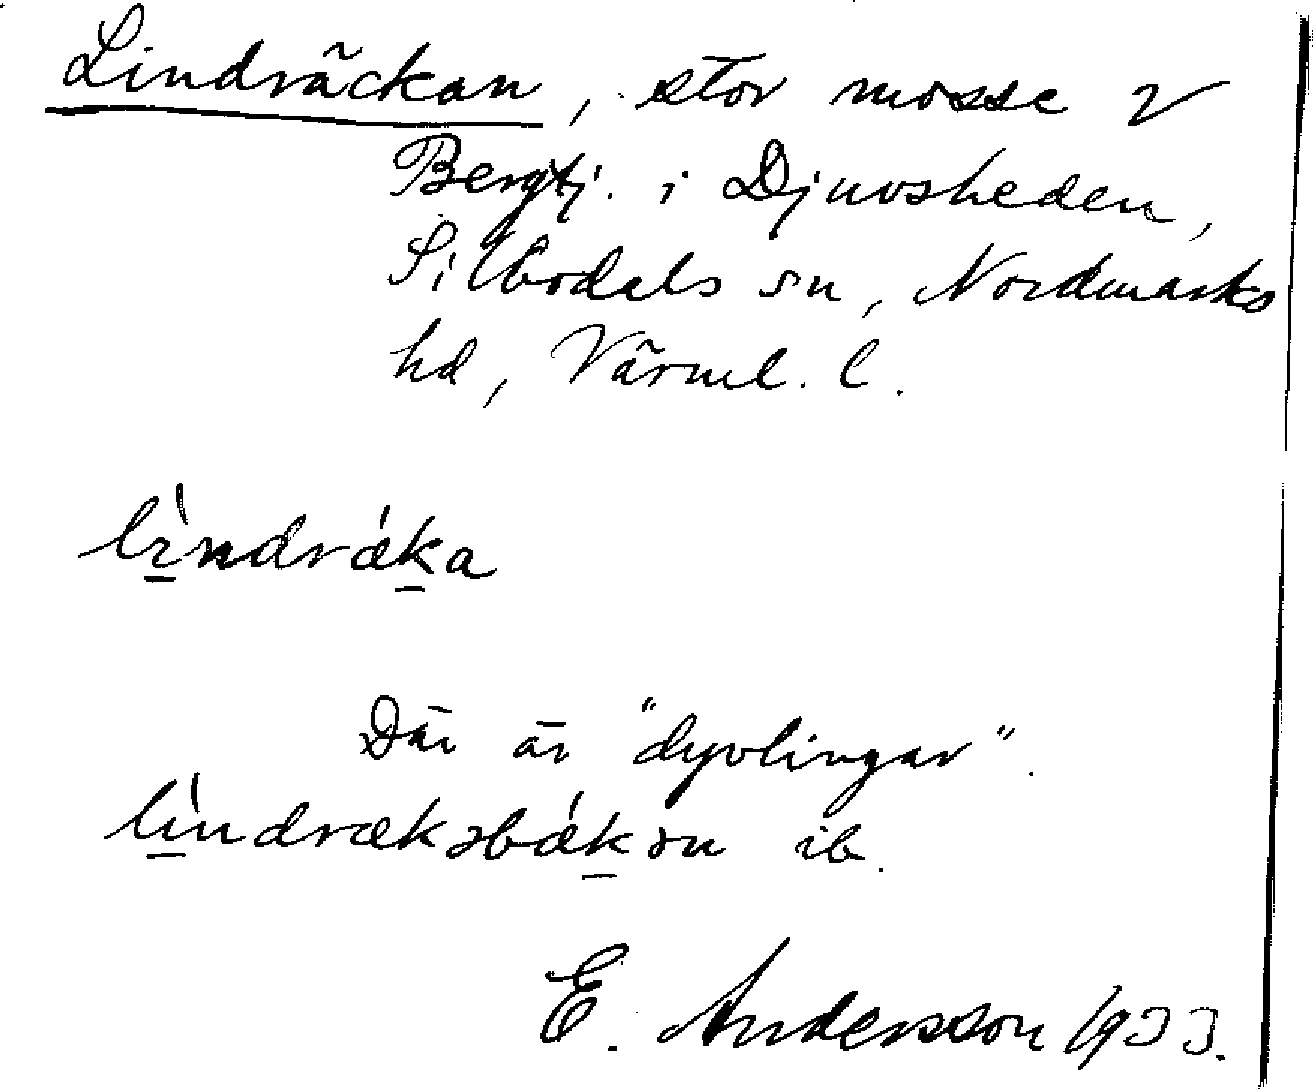 Lindräckan, stor mosse V
Bergtj. i Djuvsheden,
Silbodals sn, Nordmarks
hd, Värml. l.
lìndrǽka
Där är "dyvlingar".
lìndrækəbǽkən ib.
E. Andersson 1933.